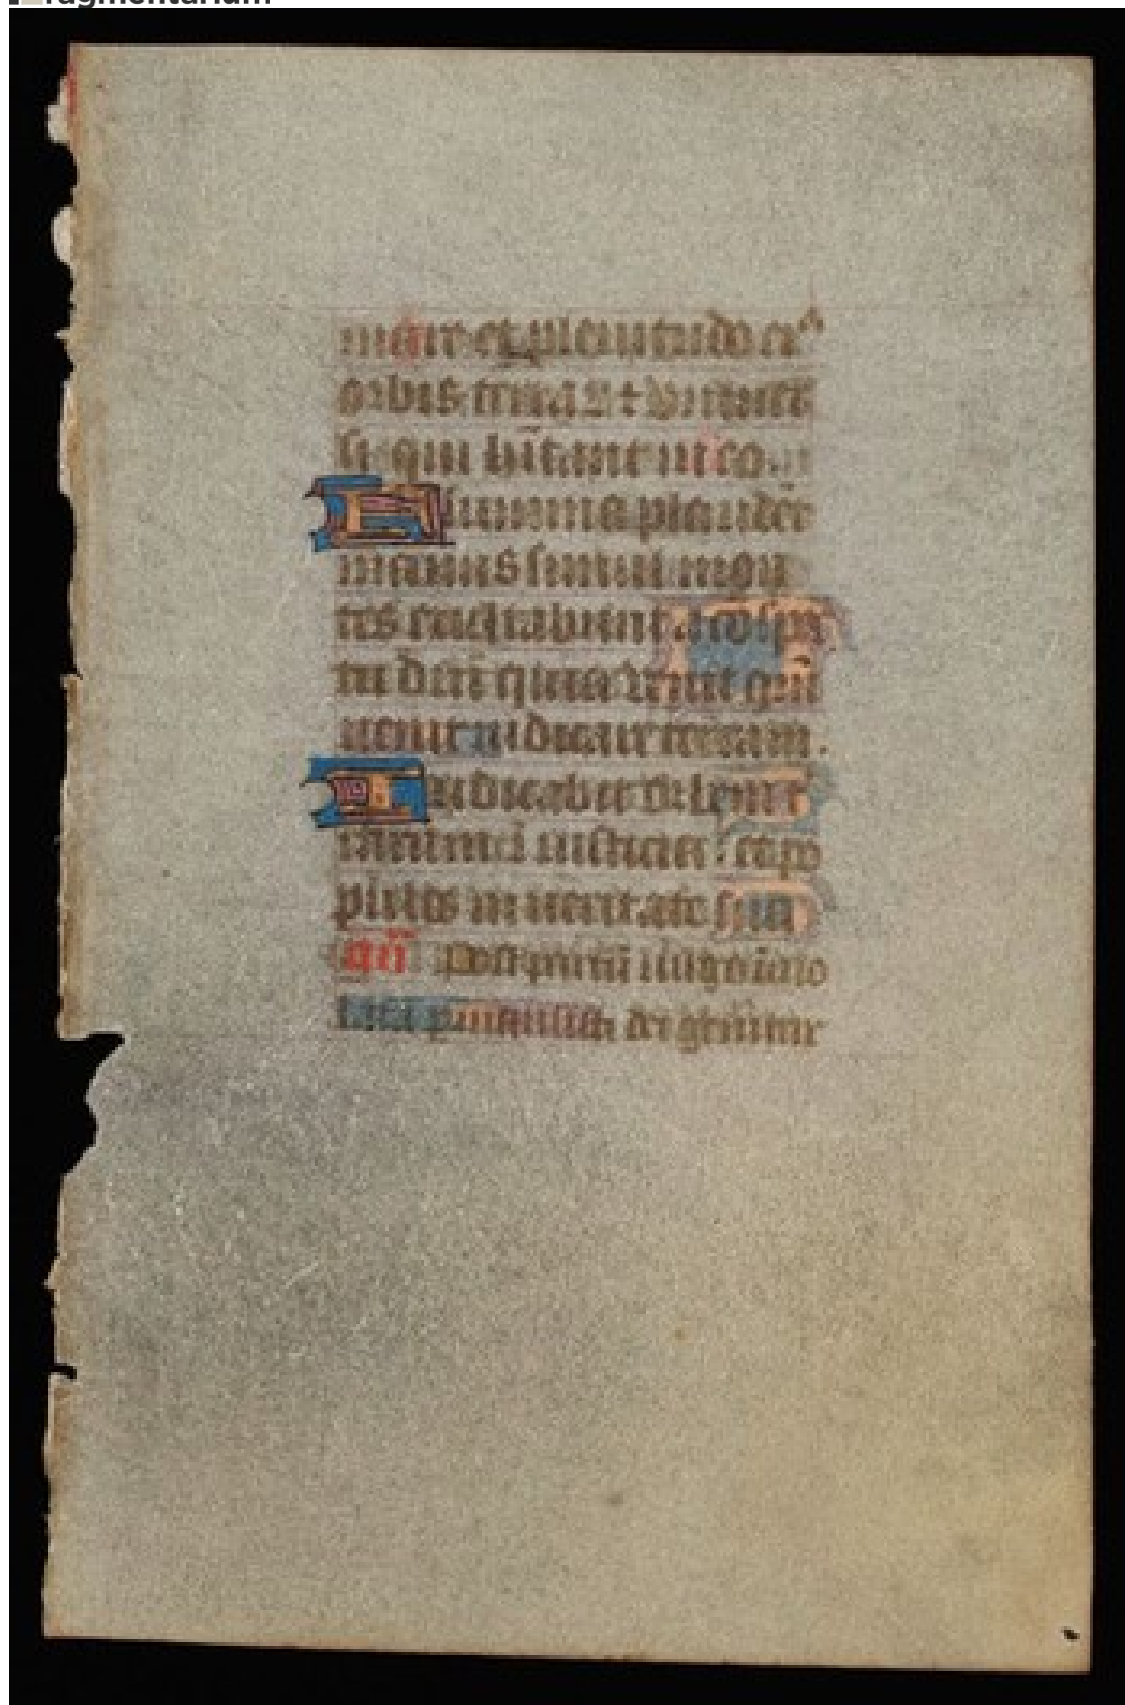 mare et plenitudo ei⁹
orbis terrarū
si qui hītant in eo.
Flumina plaudēt
manus simul mon
tes exultabunt a cōspc
tu dnī quia venit qm̄
uenit iudicare terram.
Iudicabit orbem ter
rarum ī iusticia: et po
plos in ueritate
añ Post partū uirgo īuio
lata pmansisti dei genitrix